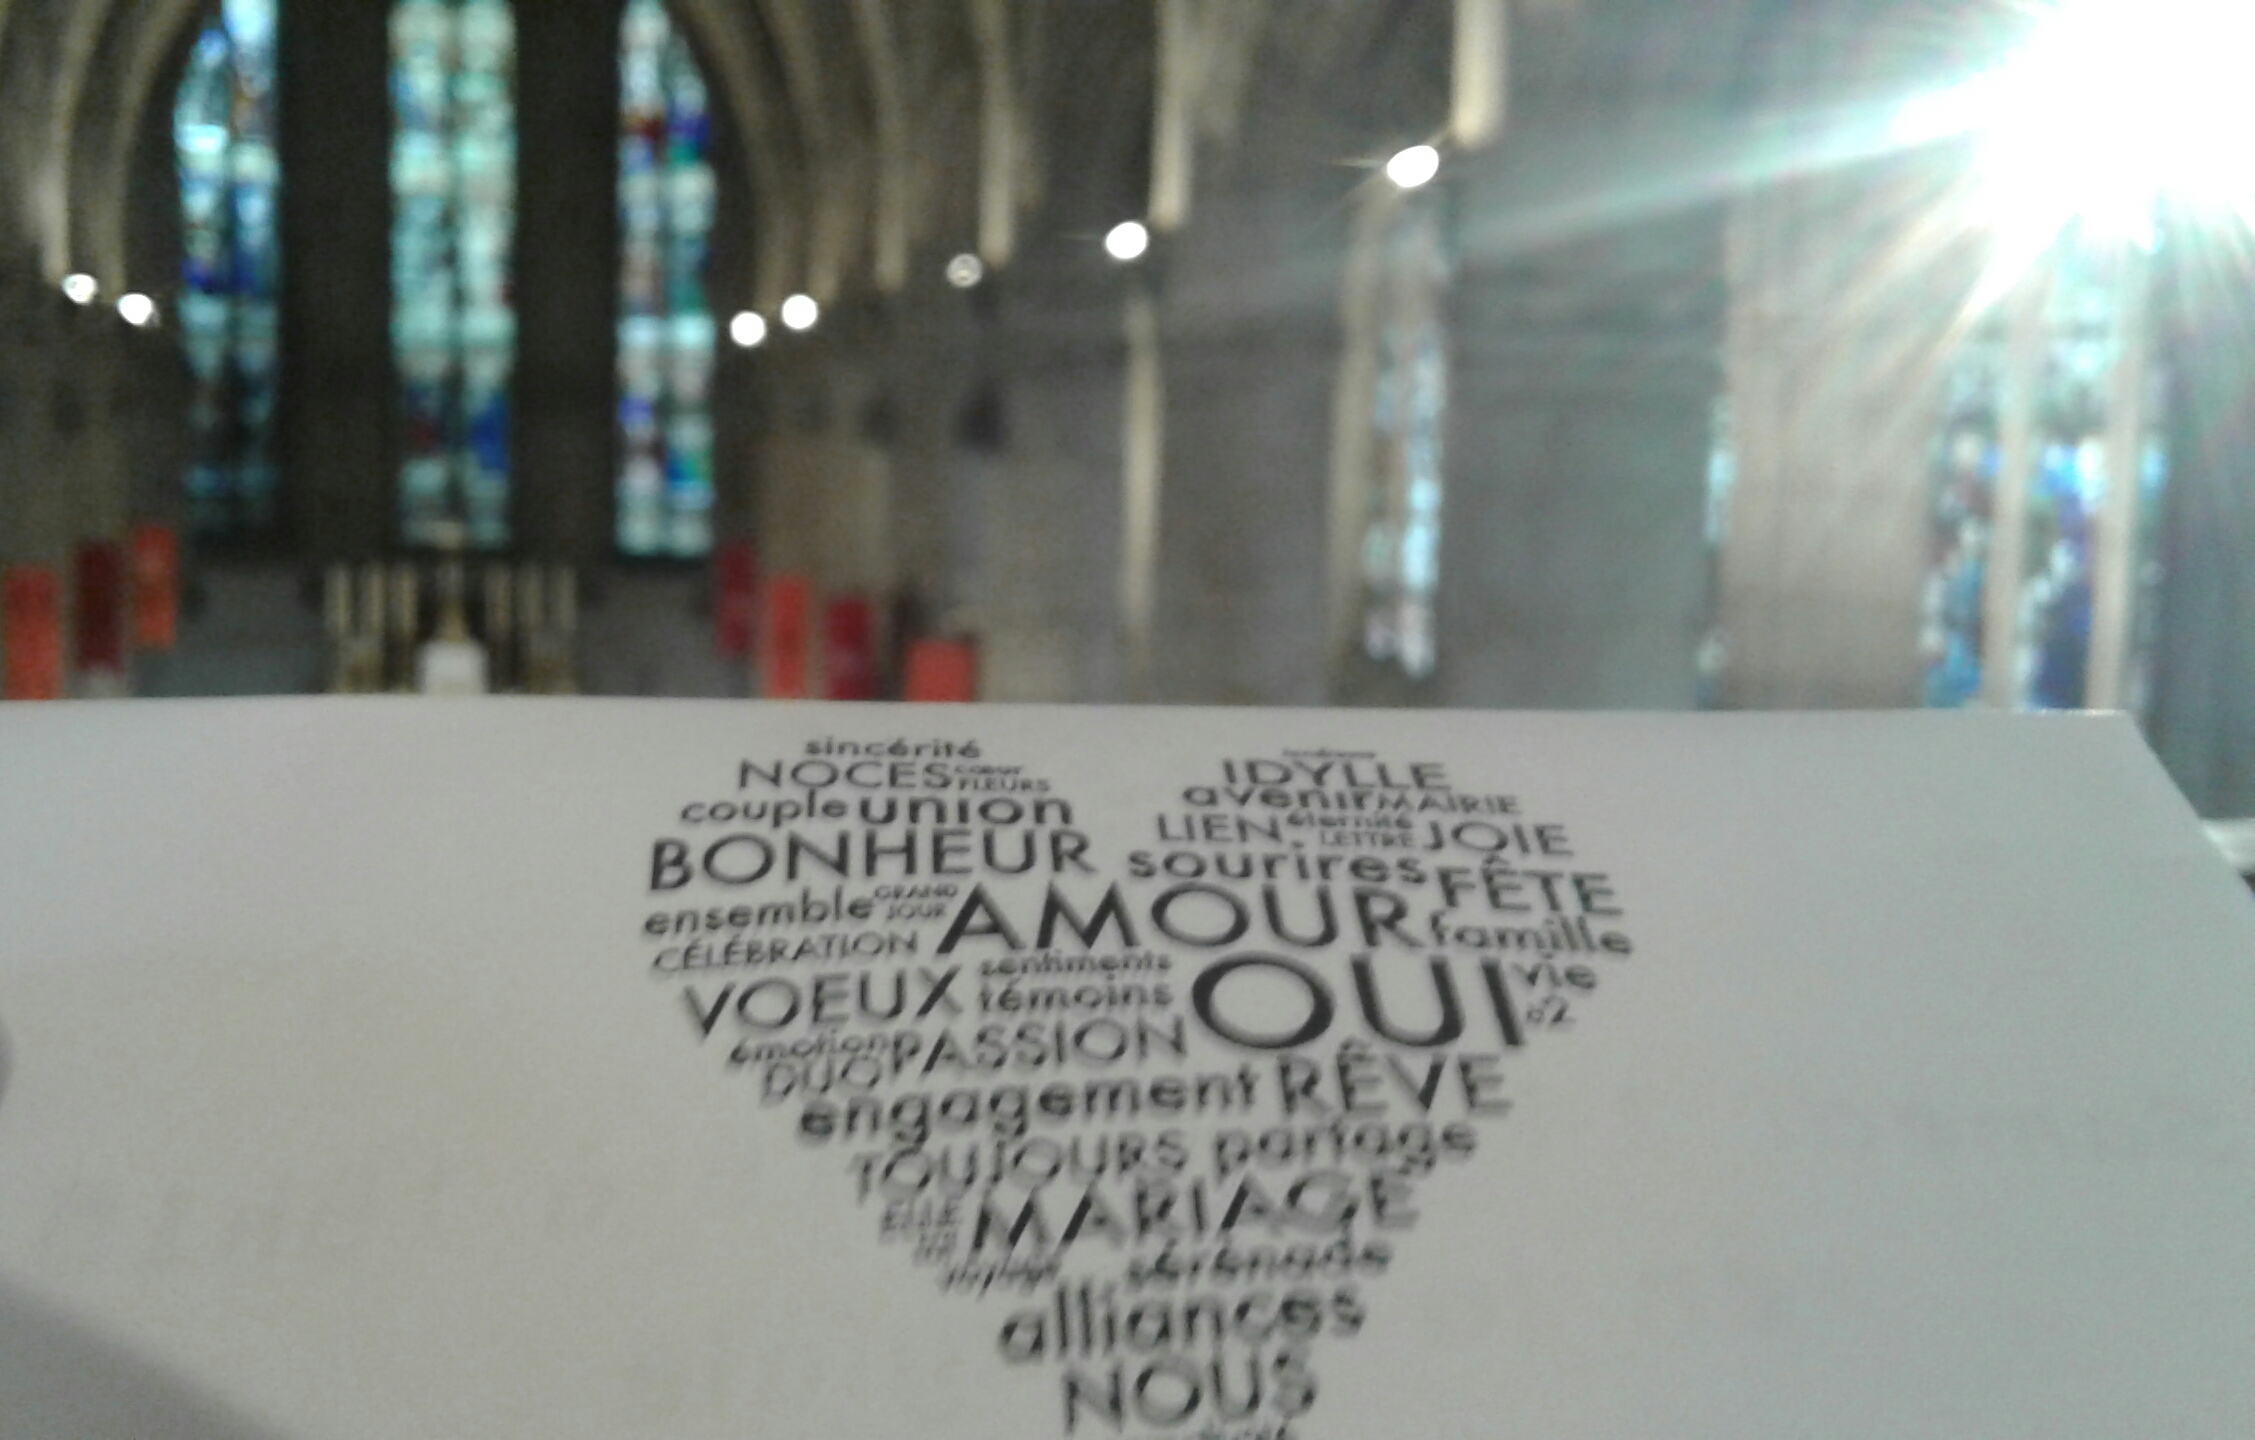 sincérité
NOCES cœur
FLEURS
couple union
BONHEUR
IDYLLE
avenir MAIRIE
LIEN éternité JOIE
LETTRE
sourires FÊTE
ensemble GRAND AMOUR famille
JOUR
CÉLÉBRATION
VOEUX sentiments OUI vie
témoins à2
émotion PASSION
DUO
engagement RÊVE
TOUJOURS partage
ELLE MARIAGE
voyage sérénade
alliances
NOUS